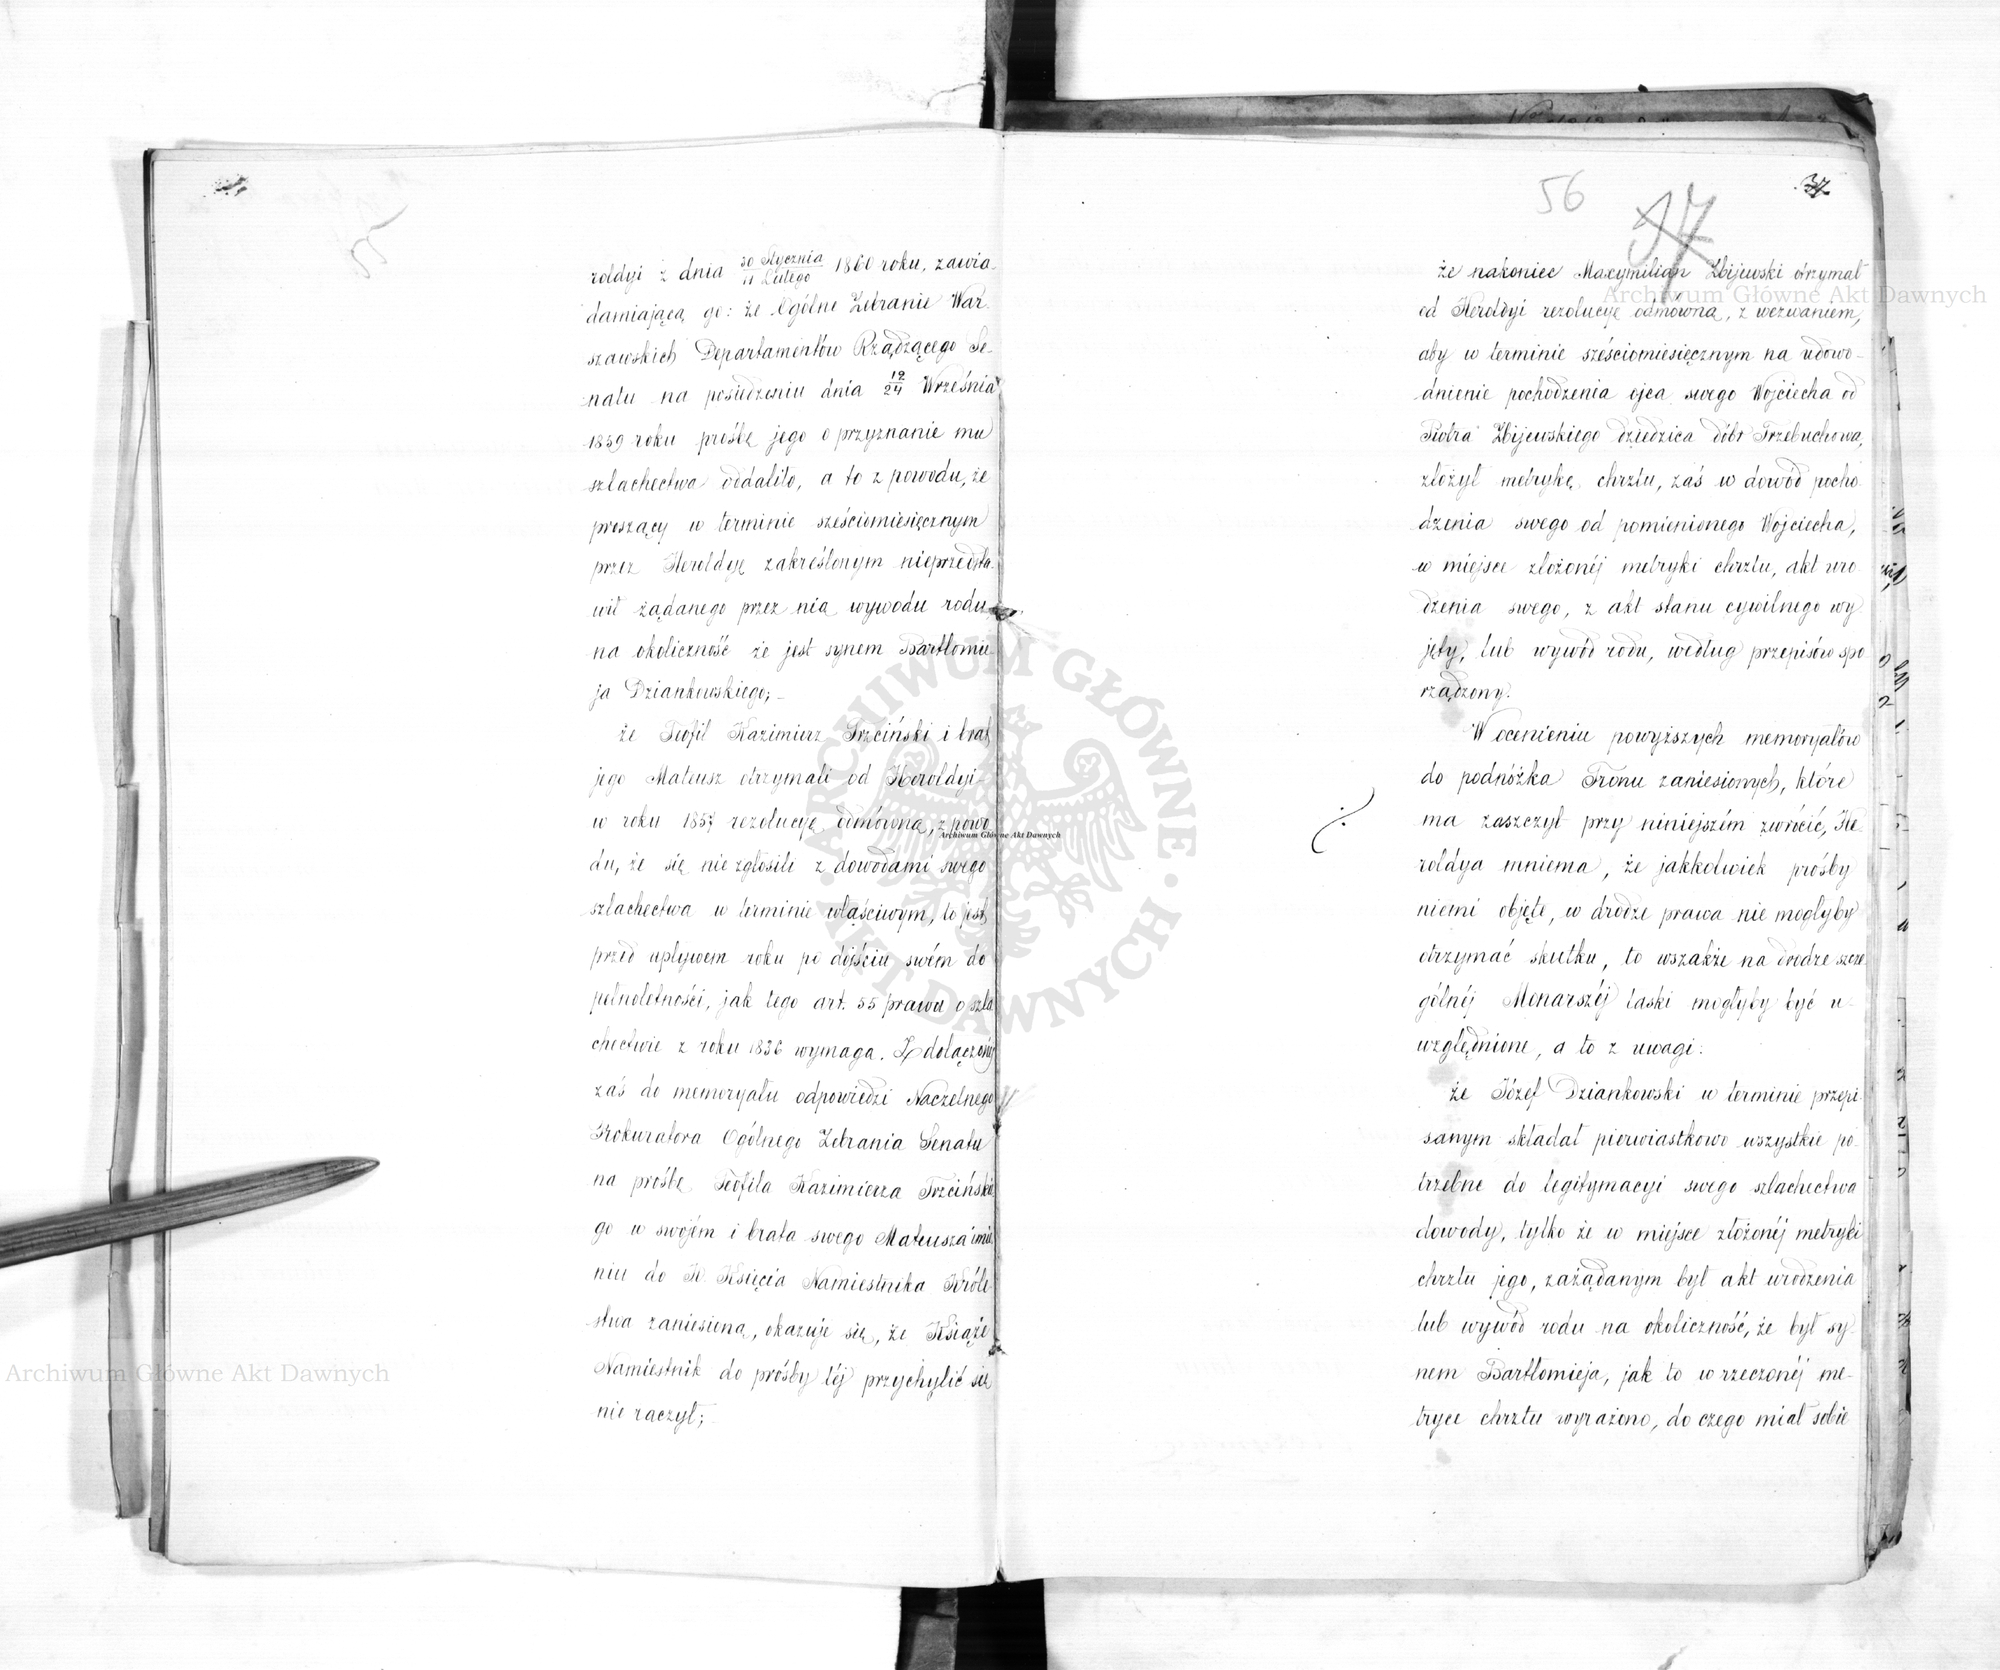 roldyi z dnia 30 Stycznia / 11 Lutego 1860 roku, zawia-
damiającą go: że Ogólne Zebranie War-
szawskich Departamentów Rządzącego Se-
natu na posiedzeniu dnia 12/24 Września
1859 roku prośbę jego o przyznanie mu
szlachectwa oddaliło, a to z powodu, że
proszący w terminie sześciomiesięcznym
przez Heroldyę zakreślonym nieprzedsta-
wił żądanego przez nią wywodu rodu
na okoliczność że jest synem Bartłomie-
ja Dziankowskiego;
że Teofil Kazimierz Trzciński i brat
jego Mateusz otrzymali od Heroldyi
w roku 1857 rezolucyę odmówną, z powo
du, że się nie zgłosili z dowodami swego
szlachectwa w terminie właściwym, to jest,
przed upływem roku po dojściu swém do
pełnoletności, jak tego art. 55 prawa o szla
chectwie z roku 1836 wymaga. Z dołączonéj
zaś do memoryału odpowiedzi Naczelnego
Prokuratora Ogólnego Zebrania Senatu
na prośbę Teofila Kazimierza Trzcińskie
go w swojém i brata swego Mateusza imie
niu do Księcia Namiestnika Króle
stwa zaniesioną, okazuje się, że Książe
Namiestnik do prośby téj przychylić się
nie raczył;
56
37
że nakoniec Maxymilian Zbijewski otrzymał
od Heroldyi rezolucyę odmówną, z wezwaniem,
aby w terminie sześciomiesięcznym na udowo-
dnienie pochodzenia ojca swego Wojciecha od
Piotra Zbijewskiego dziedzica dóbr Trzebuchowa,
złożył metrykę chrztu, zaś w dowód pocho
dzenia swego od pomienionego Wojciecha,
w miejsce złożonéj metryki chrztu, akt uro
dzenia swego, z akt stanu cywilnego wy
jęty, lub wywód rodu, według przepisów spo
rządzony.
W ocenieniu powyższych memoryałów
do podnóżka Tronu zaniesionych, które
ma zaszczyt przy niniejszém zwrócić, He
roldya mniema, że jakkolwiek prośby
niemi objęte, w drodze prawa nie mogłyby
otrzymać skutku, to wszakże na drodze szcze
gólnéj Monarszéj łaski mogłyby być u-
względnione, a to z uwagi:
że Józef Dziankowski w terminie przepi-
sanym składał pierwiastkowo wszystkie po-
trzebne do legitymacyi swego szlachectwa
dowody, tylko że w miejsce złożonéj metryki
chrztu jego, zażądanym był akt urodzenia
lub wywód rodu na okoliczność, że był sy-
nem Bartłomieja, jak to w rzeczonéj me-
tryce chrztu wyrażono, do czego miał sobie
Archiwum Główne Akt Dawnych
Archiwum Główne Akt Dawnych
Archiwum Główne Akt Dawnych
ARCHIWUM GŁÓWNE AKT DAWNYCH